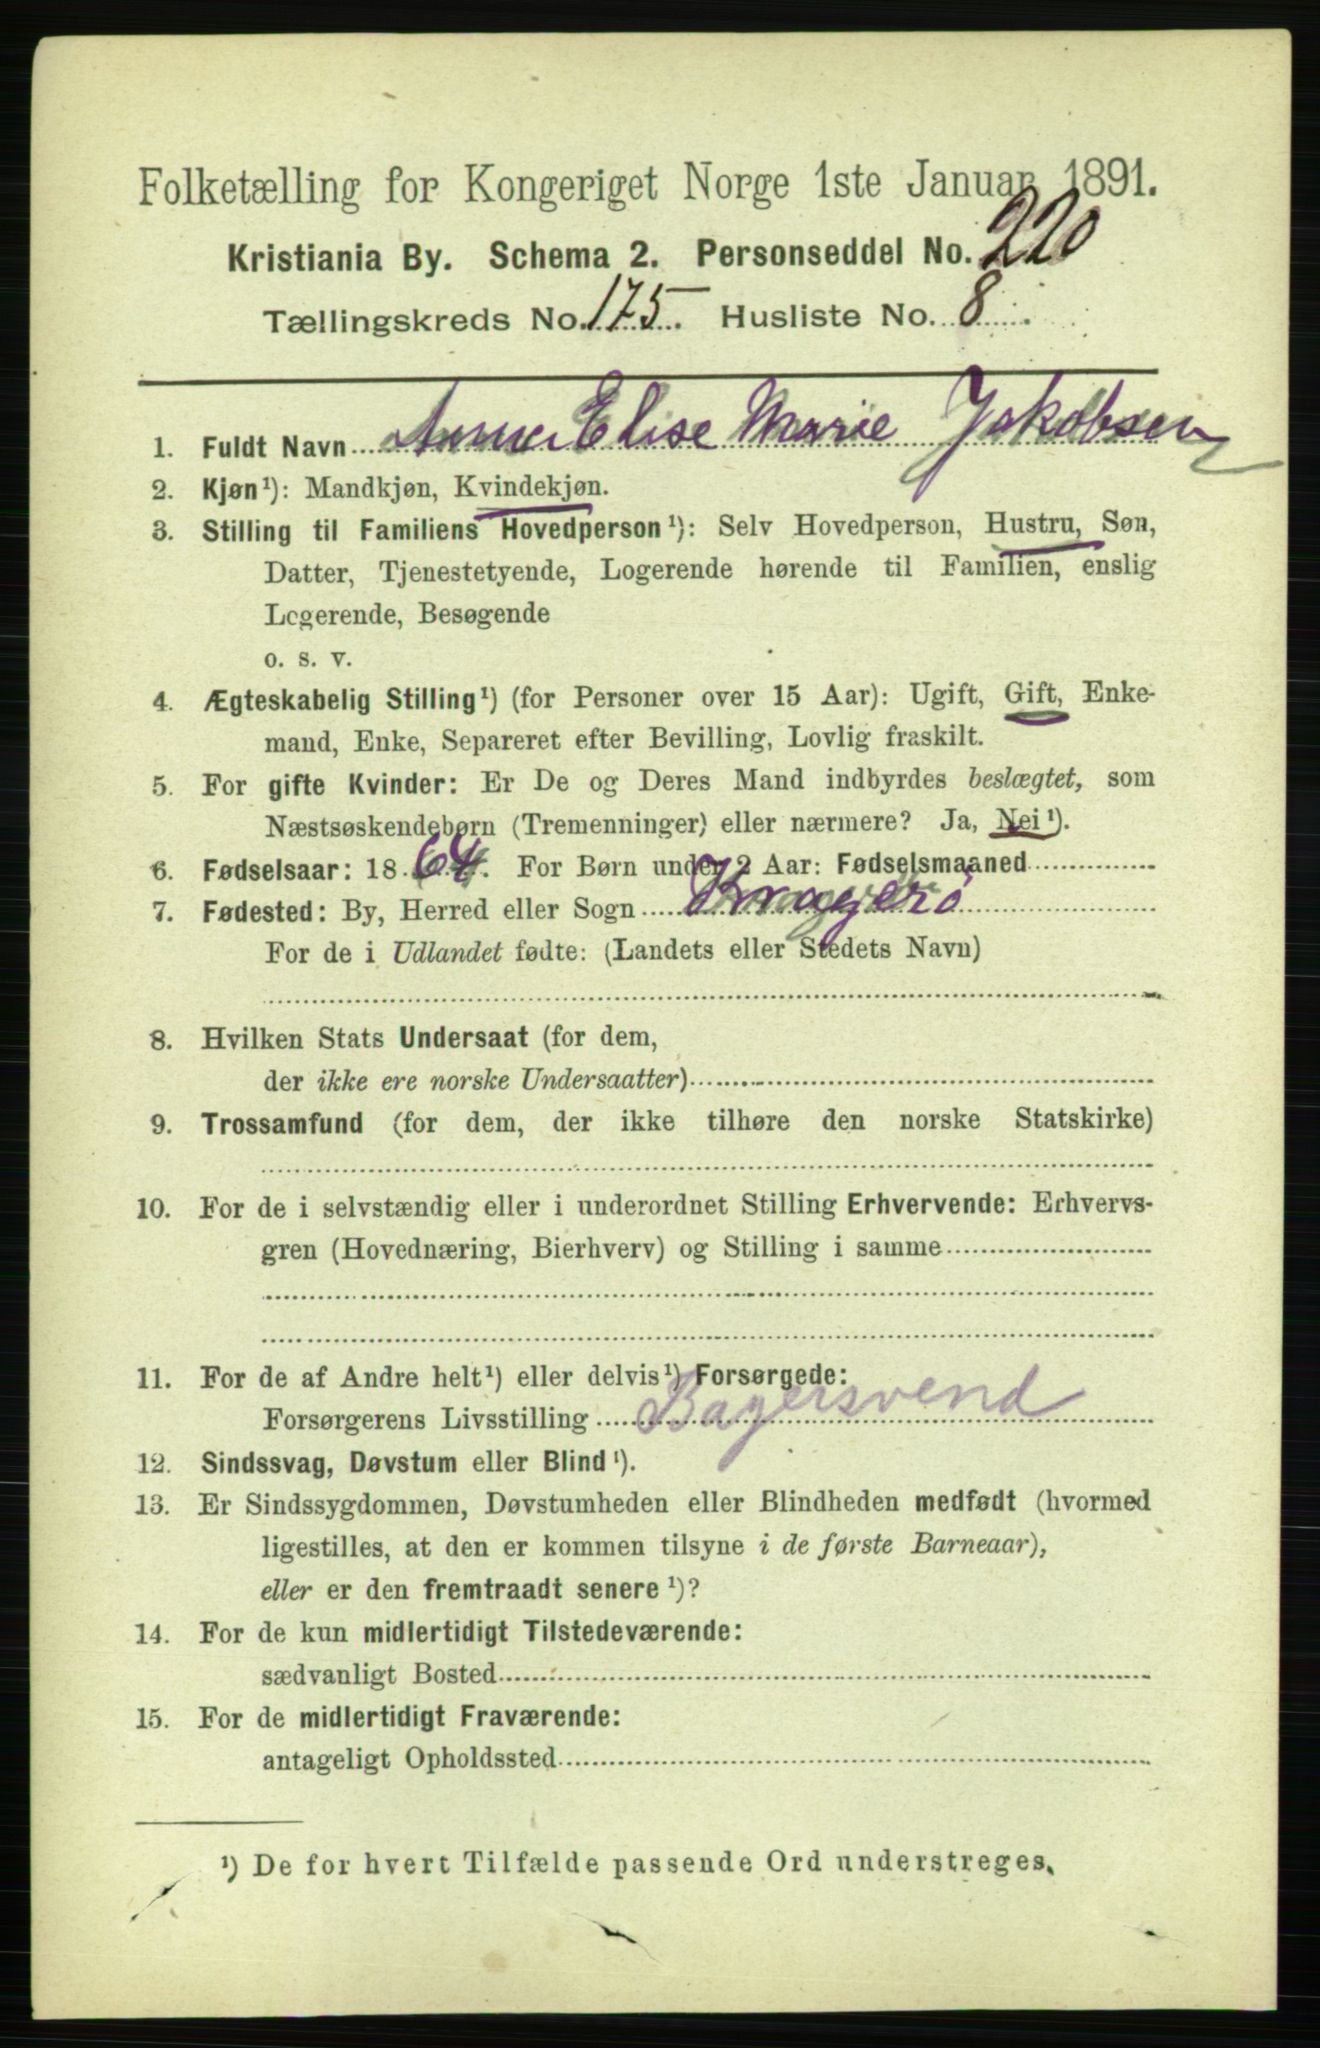 Folketælling for Kongeriget Norge 1ste Januar 1891.
Kristiania By. Schema 2. Personseddel No. 220
Tællingskreds No. 175. Husliste No. 8
1. Fuldt Navn Anna Elise Marie Jakobsen
2. Kjøn¹): Mandkjøn, Kvindekjøn.
3. Stilling til Familiens Hovedperson¹): Selv Hovedperson, Hustru, Søn,
Datter, Tjenestetyende, Logerende hørende til Familien, enslig
Logerende, Besøgende
o. s. v.
4. Ægteskabelig Stilling¹) (for Personer over 15 Aar): Ugift, Gift, Enke-
mand, Enke, Separeret efter Bevilling, Lovlig fraskilt.
5. For gifte Kvinder: Er De og Deres Mand indbyrdes beslægtet, som
Næstsøskendebørn (Tremenninger) eller nærmere? Ja, Nei¹).
6. Fødselsaar: 1864. For Børn under 2 Aar: Fødselsmaaned
7. Fødested: By, Herred eller Sogn Kragerö
For de i Udlandet fødte: (Landets eller Stedets Navn)
8. Hvilken Stats Undersaat (for dem,
der ikke ere norske Undersaatter)
9. Trossamfund (for dem, der ikke tilhøre den norske Statskirke)
10. For de i selvstændig eller i underordnet Stilling Erhvervende: Erhvervs-
gren (Hovednæring, Bierhverv) og Stilling i samme
11. For de af Andre helt¹) eller delvis¹) Forsørgede:
Forsørgerens Livsstilling Bagersvend
12. Sindssvag, Døvstum eller Blind¹).
13. Er Sindssygdommen, Døvstumheden eller Blindheden medfødt (hvormed
ligestilles, at den er kommen tilsyne i de første Barneaar),
eller er den fremtraadt senere¹)?
14. For de kun midlertidigt Tilstedeværende:
sædvanligt Bosted
15. For de midlertidigt Fraværende:
antageligt Opholdssted
¹) De for hvert Tilfælde passende Ord understreges.